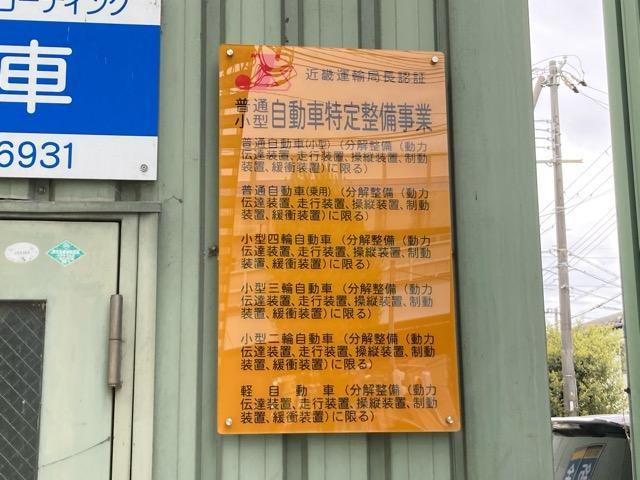 コーティング
車
6931
近畿運輸局長認証
普通
小型 自動車特定整備事業
普通自動車(小型)(分解整備(動力
伝達装置、走行装置、操縦装置、制動
装置、緩衝装置)に限る)
普通自動車(乗用)(分解整備(動力
伝達装置、走行装置、操縦装置、制動
装置、緩衝装置)に限る)
小型四輪自動車(分解整備(動力
伝達装置、走行装置、操縦装置、制動
装置、緩衝装置)に限る)
小型三輪自動車(分解整備(動力
伝達装置、走行装置、操縦装置、制動
装置、緩衝装置)に限る)
小型二輪自動車(分解整備(動力
伝達装置、走行装置、操縦装置、制動
装置、緩衝装置)に限る)
軽自動車(分解整備(動力
伝達装置、走行装置、操縦装置、制動
装置、緩衝装置)に限る)